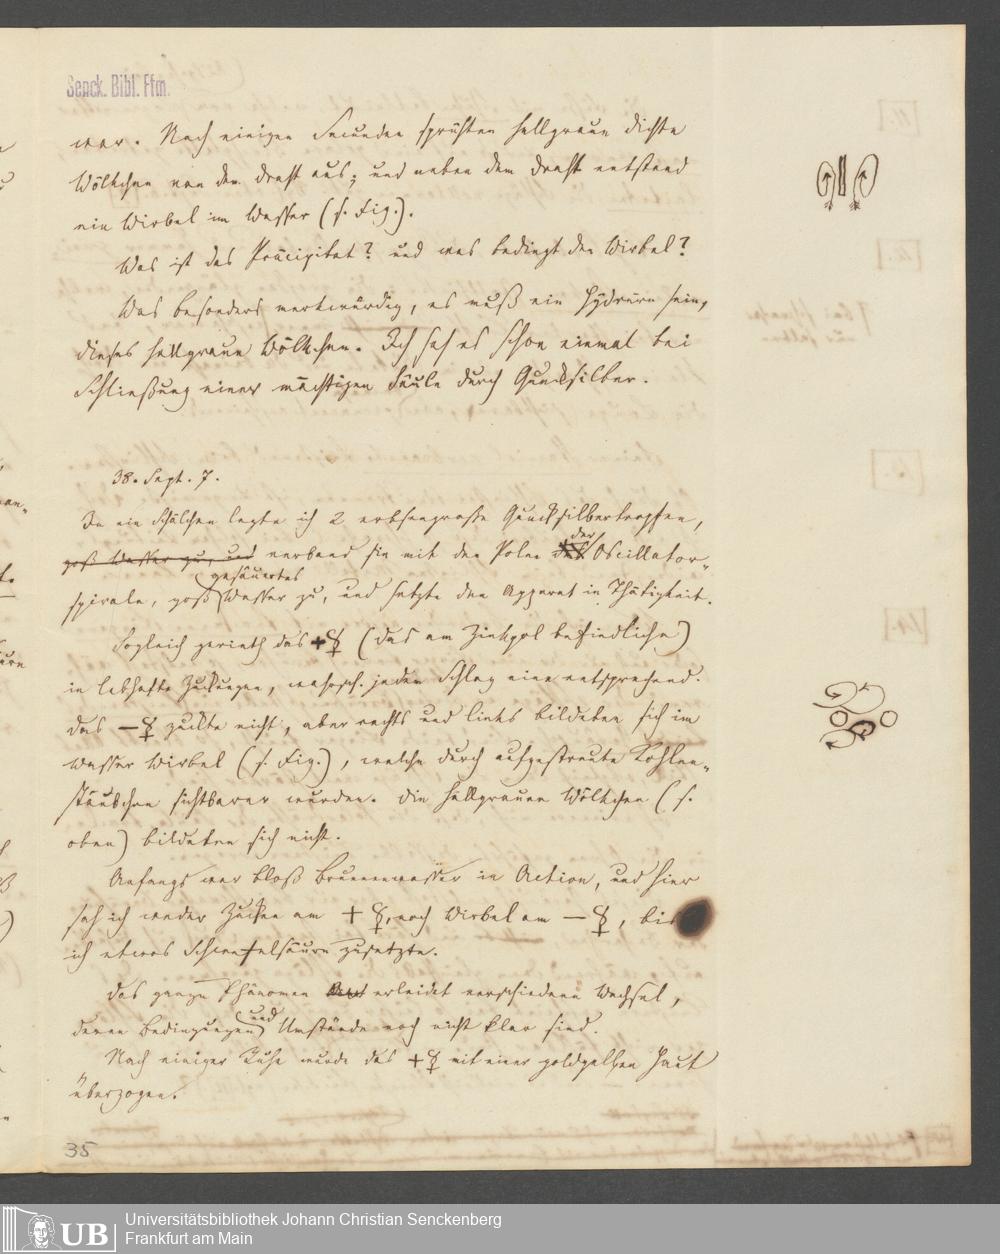 Senck. Bibl. Ffm.
war. Nach einigen Secunden sprühten hellgraue dichte
Wölkchen von dem Draht aus; und neben dem Draht entstand
ein Wirbel im Wasser (s. Fig.).
Was ist das Präcipitat? und was bedingt den Wirbel?
Was besonders merkwürdig, es muß ein Hydrüre sein,
dieses hellgraue Wölkchen. Ich sah es schon einmal bei
Schließung einer mächtigen Säule durch Quecksilber.
38. Sept. 7.
In ein Schälchen legte ich 2 erbsengroße Quecksilbertropfen,
goß Wasser zu, und verband sie mit den Polen der Oscillator-
spirale, goß gesäuertes Wasser zu, und setzte den Apparat in Thätigkeit.
Sogleich gerieth das +☿ (das am Zinkpol befindliche)
in lebhafte Zuckungen, wahrsch. jedem Schlag eine entsprechend.
Das -☿ zuckte nicht, aber rechts und links bildeten sich im
Wasser Wirbel (s. Fig.), welche durch aufgestreute Kohlen-
stäubchen sichtbarer wurden. Die hellgrauen Wölkchen (s.
oben) bildeten sich nicht.
Anfangs war bloß Brunnenwasser in Action, und hier
sah ich weder Zucken am +☿, noch Wirbel am -☿, bis
ich etwas Schwefelsäure zusetzte.
Das ganze Phänomen erleidet verschiedene Wechsel,
deren Bedingungen und Umstände noch nicht klar sind.
Nach einiger Ruhe wurde das +☿ mit einer goldgelben Haut
überzogen.
35
UB
Universitätsbibliothek Johann Christian Senckenberg
Frankfurt am Main